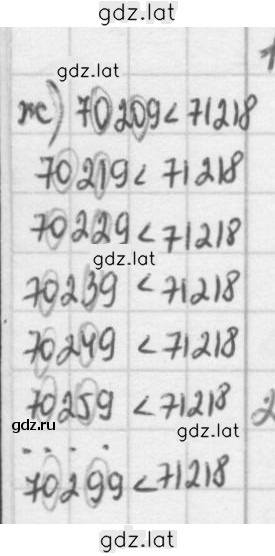 gdz.lat
gdz.lat
ж) 70209 < 71218
70219 < 71218
gdz.lat
70229 < 71218
gdz.lat
70239 < 71218
70249 < 71218
gdz.lat
70259 < 71218
www.gdz.lat
gdz.lat
. . . .
70299 < 71218
gdz.lat